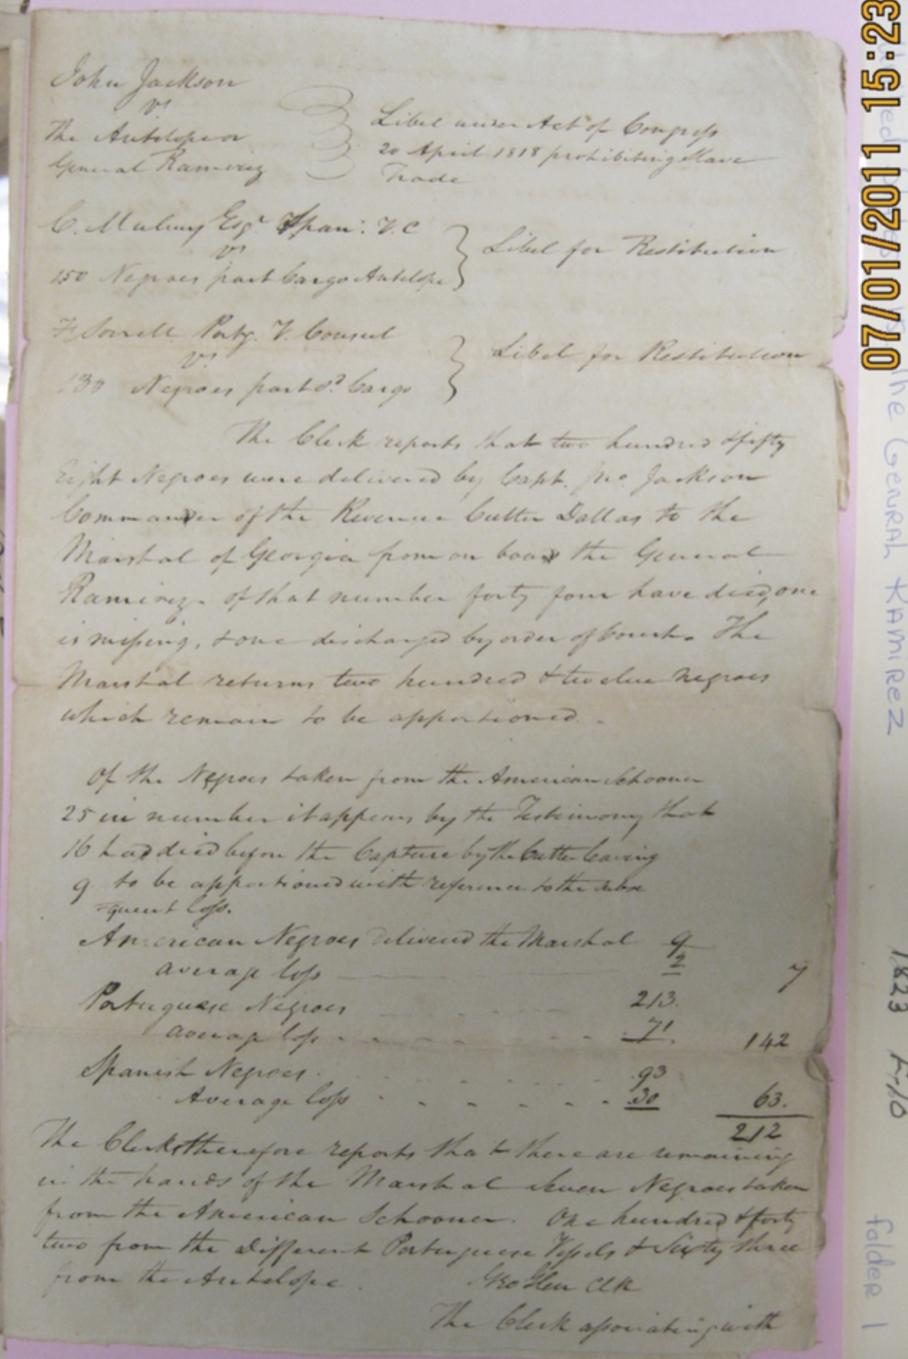 John Jackson
vs
The Antelope or
General Ramirez
Libel under Act of Congress
20 April 1818 prohibiting Slave
Trade
C. Mulvey Esqr Span: V. C
vs
150 Negroes part Cargo Antelope
Libel for Restitution
F Sorrell Portg. V. Consul
vs
130 Negroes part sd. Cargo
Libel for Restitution
The Clerk reports that two hundred & fifty
Eight Negroes were delivered by Capt. Jno. Jackson
Commander of the Revenue Cutter Dallas to the
Marshal of Georgia from on board the General
Ramirez. of that number forty four have died, one
is missing, & one discharged by order of Court. The
Marshal returns two hundred & twelve negroes
which remain to be apportioned.
Of the Negroes taken from the American Schooner
25 in number it appears by the Testimony that
16 had died before the Capture by the Cutter leaving
9 to be apportioned with reference to the subse
=quent loss.
American Negroes delivered the Marshal 9
average loss 2 7
Portuguese Negroes 213.
average loss 71. 142
Spanish Negroes 93
Average loss 30 63.
212
The Clerk therefore reports that there are remaining
in the hands of the Marshal Seven Negroes taken
from the American Schooner. One hundred & forty
two from the different Portuguese Vessels & Sixty three
from the Antelope. Geo Glen Clk
The Clerk associating with
07/01/2011 15:23
The General Ramirez
1823
folder 1